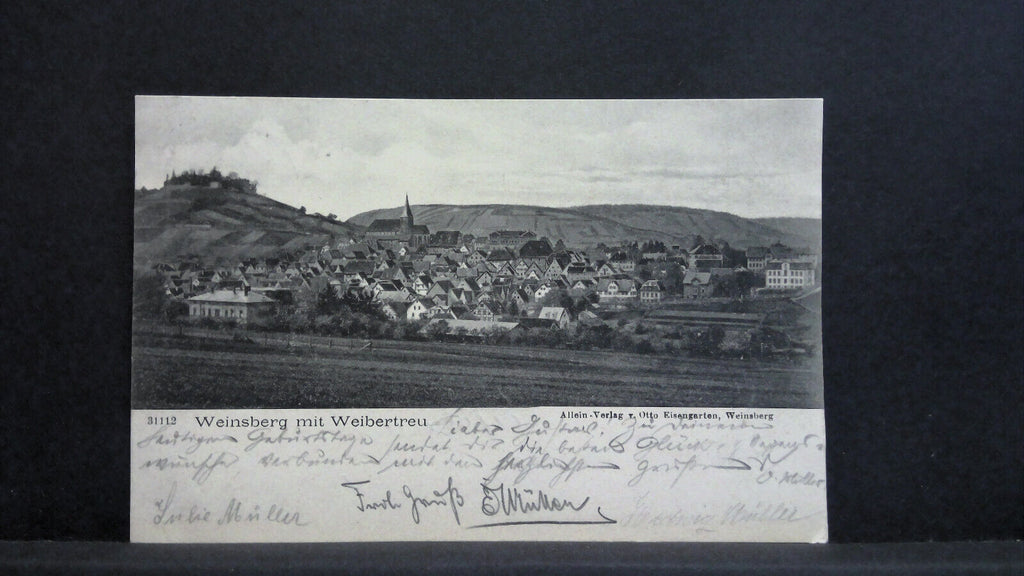 31112 Weinsberg mit Weibertreu
Allein-Verlag v. Otto Eisengarten, Weinsberg
Lieber Gustav! Zu Deinem
heutigen Geburtstage sendet dir die besten Glück- & Segens-
wünsche verbunden mit den herzlichsten Grüßen
O. Müller
Julie Müller Froh Gruß E Müller Hedwig Müller